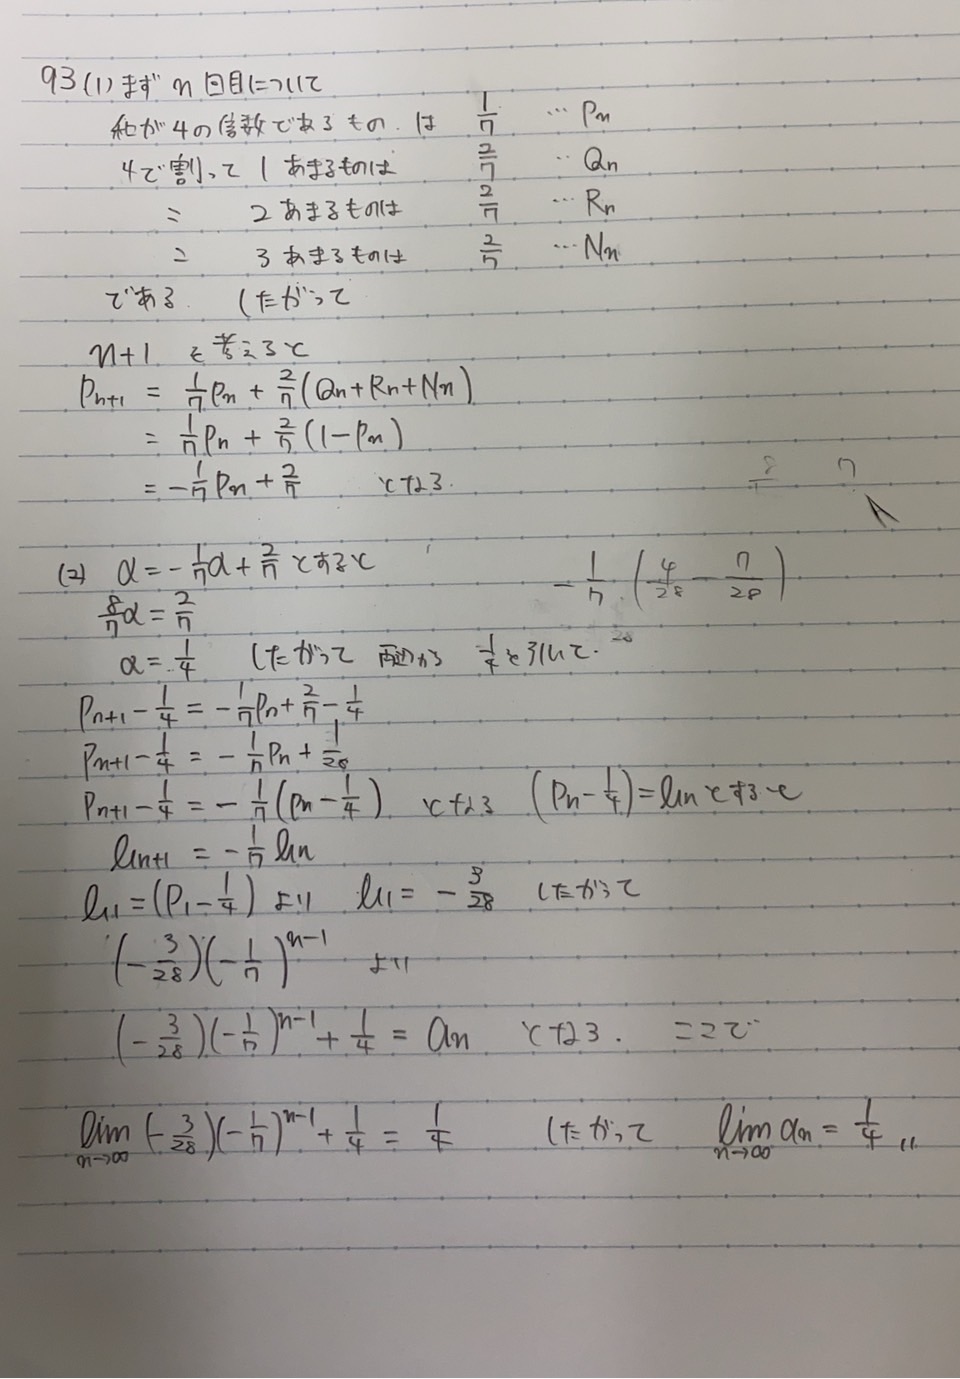 93 (1) まず n 回目について
和が4の倍数であるもの.は 1/7 … Pn
4で割って 1 あまるものは 2/7 ‥ Qn
〃 2 あまるものは 2/7 … Rn
〃 3 あまるものは 2/7 … Nn
である. したがって
n+1 を考えると
Pn+1 = 1/7 Pn + 2/7 (Qn+Rn+Nn)
= 1/7 Pn + 2/7 (1-Pn)
= -1/7 Pn + 2/7 となる.
(2) α = -1/7 α + 2/7 とすると
- 1/7 · (4/28 - 7/28)
8/7 α = 2/7
α = 1/4 したがって 両辺から 1/4 を引いて.
Pn+1 - 1/4 = -1/7 Pn + 2/7 - 1/4
Pn+1 - 1/4 = -1/7 Pn + 1/28
Pn+1 - 1/4 = -1/7 (Pn - 1/4) となる (Pn - 1/4) = bn とすると
bn+1 = -1/7 bn
b1 = (P1 - 1/4) より b1 = -3/28 したがって
(-3/28)(-1/7)^n-1 より
(-3/28)(-1/7)^n-1 + 1/4 = an となる. ここで
lim n→∞ (-3/28)(-1/7)^n-1 + 1/4 = 1/4 したがって lim n→∞ an = 1/4 〃